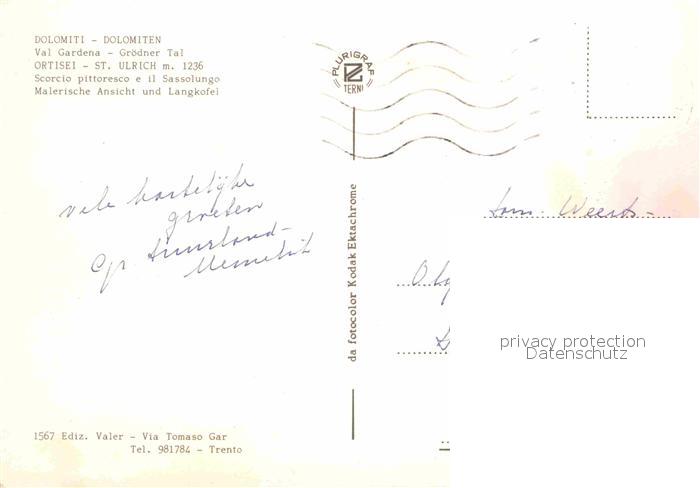 DOLOMITI - DOLOMITEN
Val Gardena - Grödner Tal
ORTISEI - ST. ULRICH m. 1236
Scorcio pittoresco e il Sassolungo
Malerische Ansicht und Langkofel
PLURIGRAF
TERNI
vele hartelijke
groeten
fam. Weerts-
da fotocolor Kodak Ektachrome
privacy protection
Datenschutz
1567 Ediz. Valer - Via Tomaso Gar
Tel. 981784 - Trento